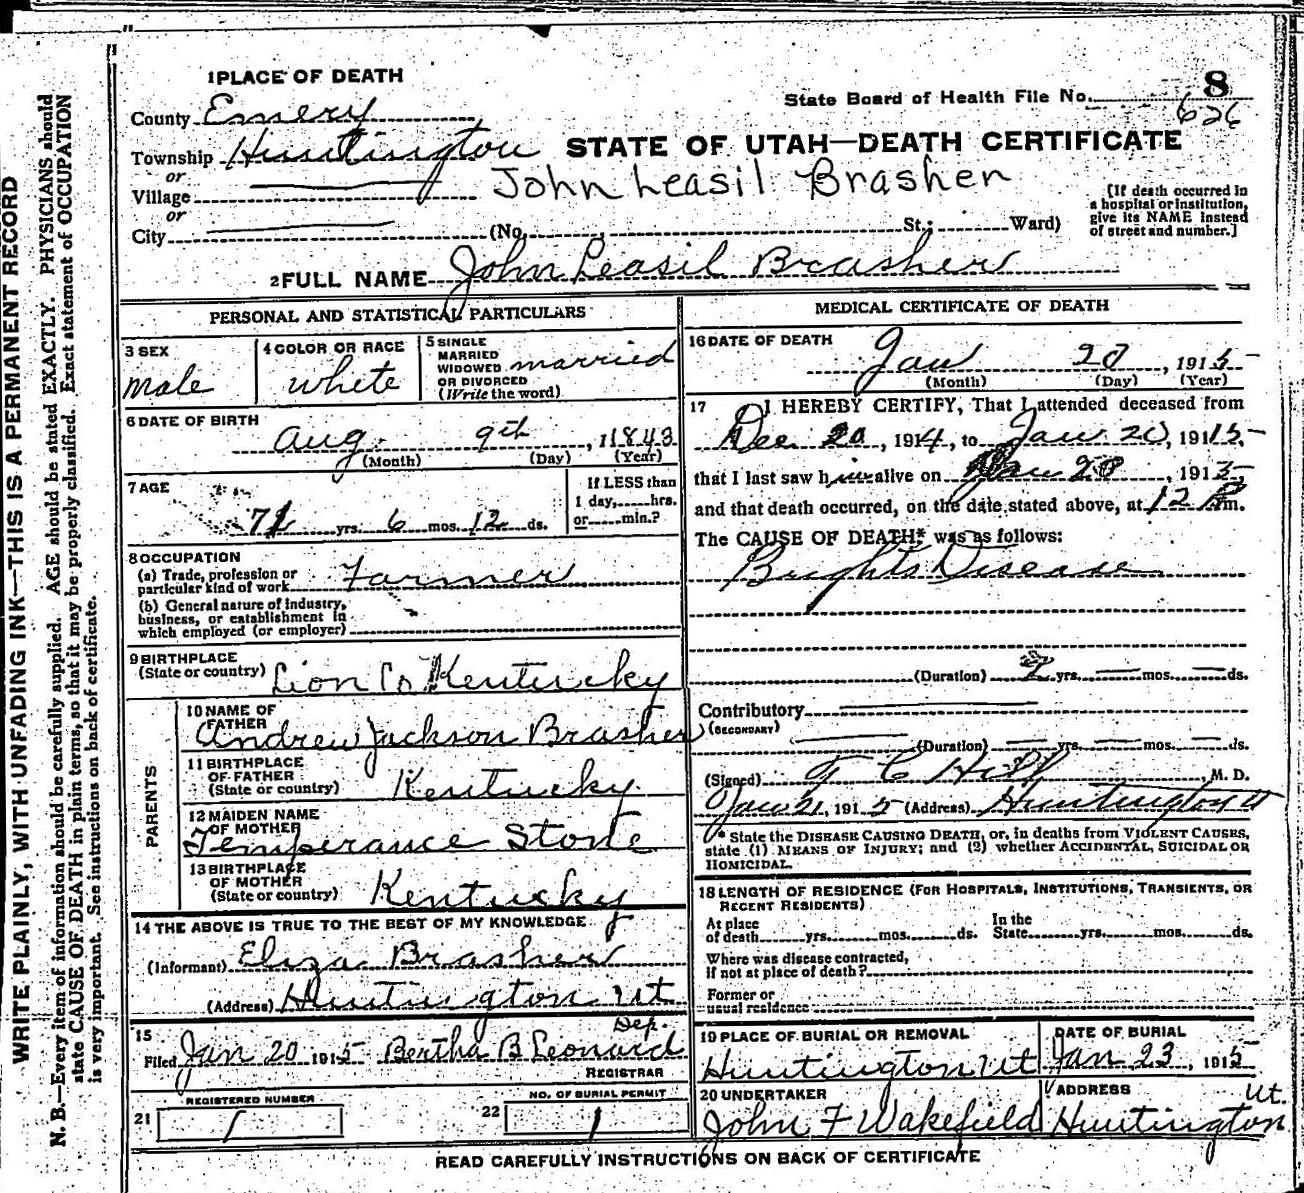 1 PLACE OF DEATH
8
State Board of Health File No. 626
County Emery
Township Huntington
STATE OF UTAH—DEATH CERTIFICATE
or
Village
John Leasil Brasher
or
City (No. St.; Ward)
(If death occurred in
a hospital or institution,
give its NAME instead
of street and number.]
2 FULL NAME John Leasil Brasher
PERSONAL AND STATISTICAL PARTICULARS
3 SEX
male
4 COLOR OR RACE
white
5 SINGLE
MARRIED
WIDOWED
OR DIVORCED
(Write the word)
married
6 DATE OF BIRTH
Aug. 9th, 1843
(Month) (Day) (Year)
7 AGE
71 yrs. 6 mos. 12 ds.
If LESS than
1 day, hrs.
or min.?
8 OCCUPATION
(a) Trade, profession or
particular kind of work Farmer
(b) General nature of industry,
business, or establishment in
which employed (or employer)
9 BIRTHPLACE
(State or country) Lion Co Kentucky
PARENTS
10 NAME OF
FATHER
Andrew Jackson Brasher
11 BIRTHPLACE
OF FATHER
(State or country) Kentucky
12 MAIDEN NAME
OF MOTHER
Temperance Stone
13 BIRTHPLACE
OF MOTHER
(State or country) Kentucky
14 THE ABOVE IS TRUE TO THE BEST OF MY KNOWLEDGE
(Informant) Eliza Brasher
(Address) Huntington Ut
15
Filed Jan 20 1915 Bertha B Leonard Dep.
REGISTRAR
21 REGISTERED NUMBER
1
22 NO. OF BURIAL PERMIT
1
MEDICAL CERTIFICATE OF DEATH
16 DATE OF DEATH
Jan 20, 1915
(Month) (Day) (Year)
17 I HEREBY CERTIFY, That I attended deceased from
Dec 20, 1914, to Jan 20, 1915,
that I last saw him alive on Jan 20, 1915,
and that death occurred, on the date stated above, at 12 P m.
The CAUSE OF DEATH* was as follows:
Brights Disease
(Duration) 2 yrs. mos. ds.
Contributory
(SECONDARY)
(Duration) yrs. mos. ds.
(Signed) T C Hill, M. D.
Jan 21, 1915 (Address) Huntington U
* State the DISEASE CAUSING DEATH, or, in deaths from VIOLENT CAUSES,
state (1) MEANS OF INJURY; and (2) whether ACCIDENTAL, SUICIDAL OR
HOMICIDAL.
18 LENGTH OF RESIDENCE (FOR HOSPITALS, INSTITUTIONS, TRANSIENTS, OR
RECENT RESIDENTS)
At place
of death yrs. mos. ds.
In the
State yrs. mos. ds.
Where was disease contracted,
if not at place of death?
Former or
usual residence
19 PLACE OF BURIAL OR REMOVAL
Huntington Ut
DATE OF BURIAL
Jan 23, 1915
20 UNDERTAKER
John F Wakefield
ADDRESS
Huntington Ut.
READ CAREFULLY INSTRUCTIONS ON BACK OF CERTIFICATE
WRITE PLAINLY, WITH UNFADING INK—THIS IS A PERMANENT RECORD
N. B.—Every item of information should be carefully supplied. AGE should be stated EXACTLY. PHYSICIANS should
state CAUSE OF DEATH in plain terms, so that it may be properly classified. Exact statement of OCCUPATION
is very important. See instructions on back of certificate.